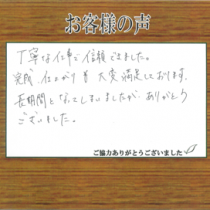 お客様の声
丁寧な仕事で信頼できました。
完成、仕上がり皆大変満足しております。
長期間となってしまいましたが、ありがとう
ございました。
ご協力ありがとうございました